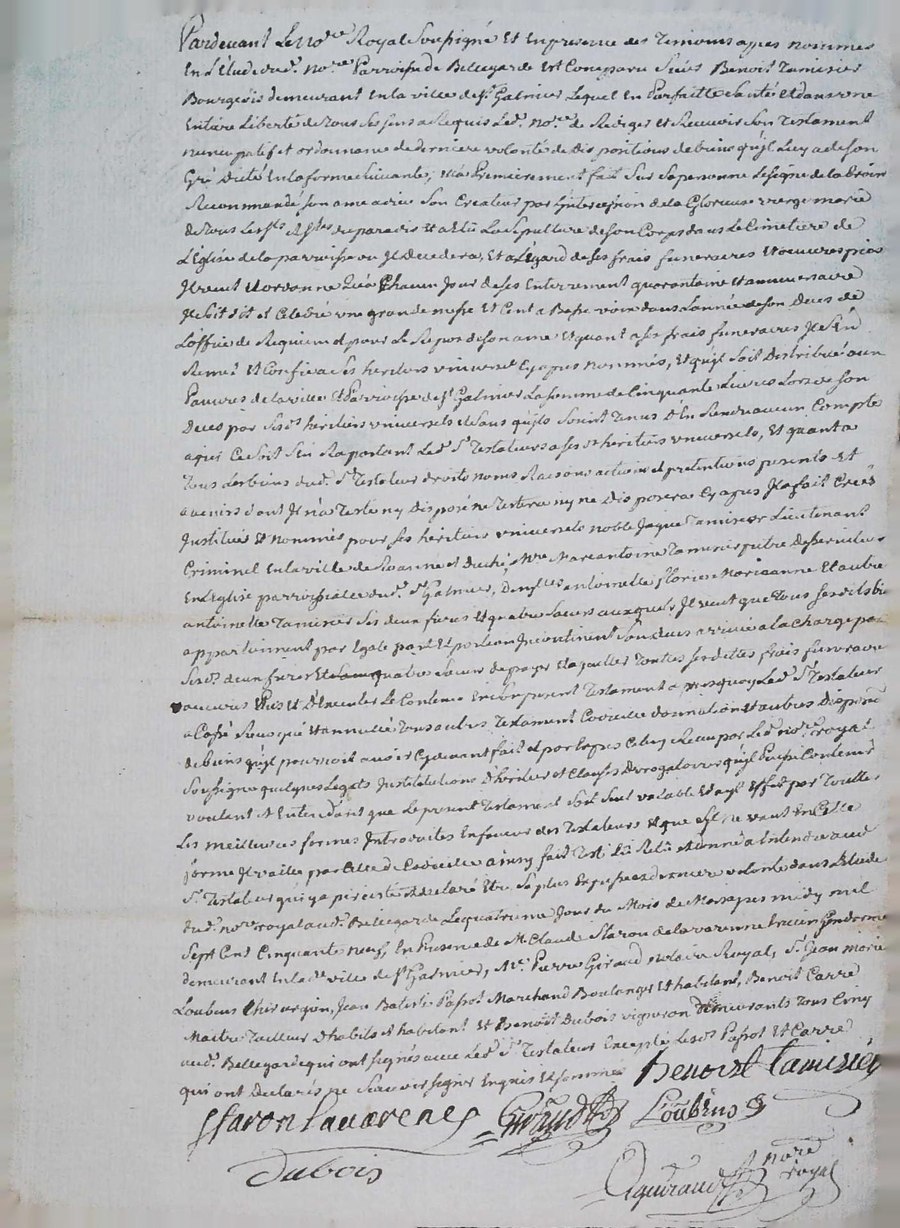 Pardevant Le No.re Royal Soussigné Et Enpresence des Temoins apres nommés
En L'Etude dud.t No.re Parroisse de Bellegarde Est Comparu Sieur Benoit Tamisier
Bourgeois demeurant En la ville de St Galmier Lequel En Parfaitte Santé Et dans une
Entiere Liberté de tous Ses Sens a Requis Led. No.re de Rediger Et Recevoir Son Testament
nuncupatif et ordonnance de derniere volonté de Dispositions de biens qu'jl Luy a de Son
Gré Dicté En la forme Suivante, Premierement fait Sur Sa personne Le Signe de la Croix
Recommandé Son ame a dieu Son Createur par L'intercession de la Glorieuse vierge marie
de tous Les Sts du paradis Et a Elû La Sepulture de Son Corps dans Le Cimetiere de
L'Eglise de la parroisse ou Jl Decedera, Et a L'Egard de Ses frais funeraires Et oeuvres pies
Jl veut Et ordonne qu'a Chacun Jour de Ses Enterrement quarantaine Et anniversaire
Jl Soit dit et Celebré une grande messe Et Cent a Basse voix dans L'année de Son Deces de
L'office de Requiem et pour Le Repos de Son ame Et quant a Ses frais funeraires Jl S'En
Remet Et Confie a Ses heritiers universels Cy apres nommés, Et qu'jl Soit Distribué aux
Pauvres de la ville Et Parroisse de St Galmier La Somme de Cinquante Livres Lors de Son
Deces par Ses heritiers universels Et Sans qu'jls Soient Tenus D'En Rendre aucun Compte
a qui Ce Soit S'En Raportant Led. Sr Testateur a Ses heritiers universels, Et quant a
Tous Les biens dud.t Sr Testateur droits noms Raisons actions et pretentions presents Et
avenirs dont Jl n'a Testé ny Disposé ne Testera ny ne Disposera Cy apres Jl a fait Créés
Jnstitués Et nommés pour Ses heritiers universels noble Jaque Tamisier Lieutenant
Criminel En la ville de Roanne et Duché, Mre Marcantoine Tamisier prêtre
En L'Eglise parroissialle dud. St Galmier, antoinette Florie Marianne Et autre
antoinette Tamisier Ses deux freres Et quatre Soeurs auxquels Jl veut que Tous Ses dits biens
appartiennent par Egale part Et portion Jncontinent Son deces arrivé a la Charge par
Ses deux freres Et quatre Soeurs de payer Et aquitter Toutes Ses dittes frais funeraires
oeuvres Pies Et D'Executer Le Contenu En Son present Testament Led. Sr Testateur
a Cassé Revoqué Et annullé Tous autres Testament Codicille donnation Et autres Disposition
de biens qu'jl pourroit avoir Cy devant fait par Led. No.re royal
Soussigné quelques Legats Jnstitutions D'heritier et Clauses Derogatoires qu'jl Puisse Contenir
voulant et Entendant que Le present Testament Soit Seul valable Et aye Effet par Toutes
Les meilleures formes Jntroduites En faveur des Testateurs Et que S'jl ne vaut En Cette
forme Jl vaille par Celle de Codicille ainsy fait Lû Relû et donné a Entendre aud.
Sr Testateur qui y a persisté Et declaré Etre Sa derniere volonté dans L'Etude
dud.t No.re royal aud. Bellegarde Le quatrieme Jour du Mois de Mars apres midy mil
Sept Cent Cinquante neuf, En Presence de Mr Claude Staron de la varenne Gendarme
demeurant En lad.e ville de St Galmier, Me Pierre Giraud notaire Royal, Sr Jean Marie
Loubens Chirurgien, Jean Batiste Passot Marchand Boulanger Et habitant, Benoit Carré
Maitre Tailleur D'habits Et habitant Et Benoit Dubois vigneron Demeurants Tous Cinq
aud. Bellegarde qui ont Signés avec Led. Sr Testateur Excepté Lesd. Passot Et Carré
qui ont Declarés ne Scavoir Signer Enquis Et Sommés Benoist Tamisier
Staron Lavarenes Giraud Loubens
Dubois
Aguiraud nore royal